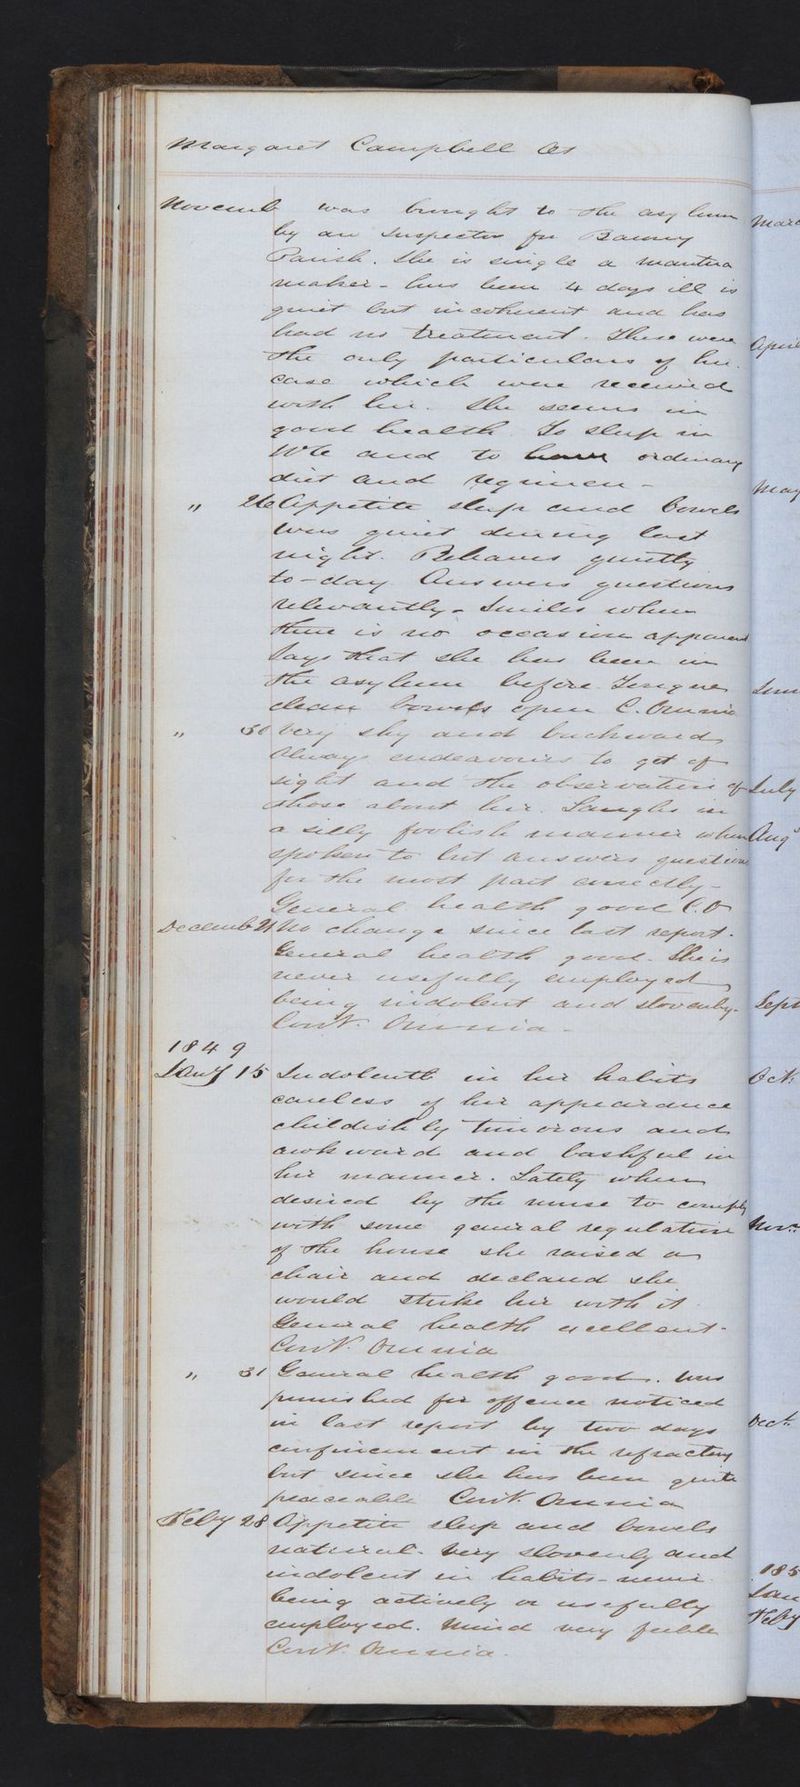 Margaret Campbell Aet
Novemb was brought to the asylum
by an Inspector for Barony
Parish. She is single a mantua
maker - has been 4 days ill is
quiet but incoherent and has
had no treatment. These were
the only particulars of her
case which were received
with her. She seems in
good health. To sleep in
and to have ordinary
diet and regimen -
" 26 Appetite sleep and bowels
Was quiet during last
night. Behaves quietly
to-day. Answers questions
relevantly - Smiles when
there is no occasion apparent
Says that she has been in
the asylum before. Tongue
clean bowels open C. Omnia
" 30 Very shy and backward
Always endeavours to get of
sight and the observation of
those about her. Laughs in
a silly foolish manner when
spoken to but answers questions
for the most part correctly -
General health good C.O
Decemb 21 No change since last report.
General health good. She is
never usefully employed
being indolent and slovenly.
Cont. Omnia -
1849
Jany 15 Indolent in her habits
careless of her appearance
childishly timorous and
awkward and bashful in
her manner. Lately when
desired by the nurse to comply
with some general regulation
of the house she raised a
chair and declared she
would strike her with it.
General health excellent.
Cont. Omnia
" 31 General health good. Was
punished for offence noticed
in last report by two days
confinement in the refractory
but since she has been quite
peaceable Cont. Omnia
Feby 28 Appetite sleep and bowels
natural. Very slovenly and
indolent in habits - never
being actively or usefully
employed. Mind very feeble
Cont. Omnia.
Marc
April
May
June
July
Augs
Sept
Oct.
Novr.
Decr.
185
Jan
Feby